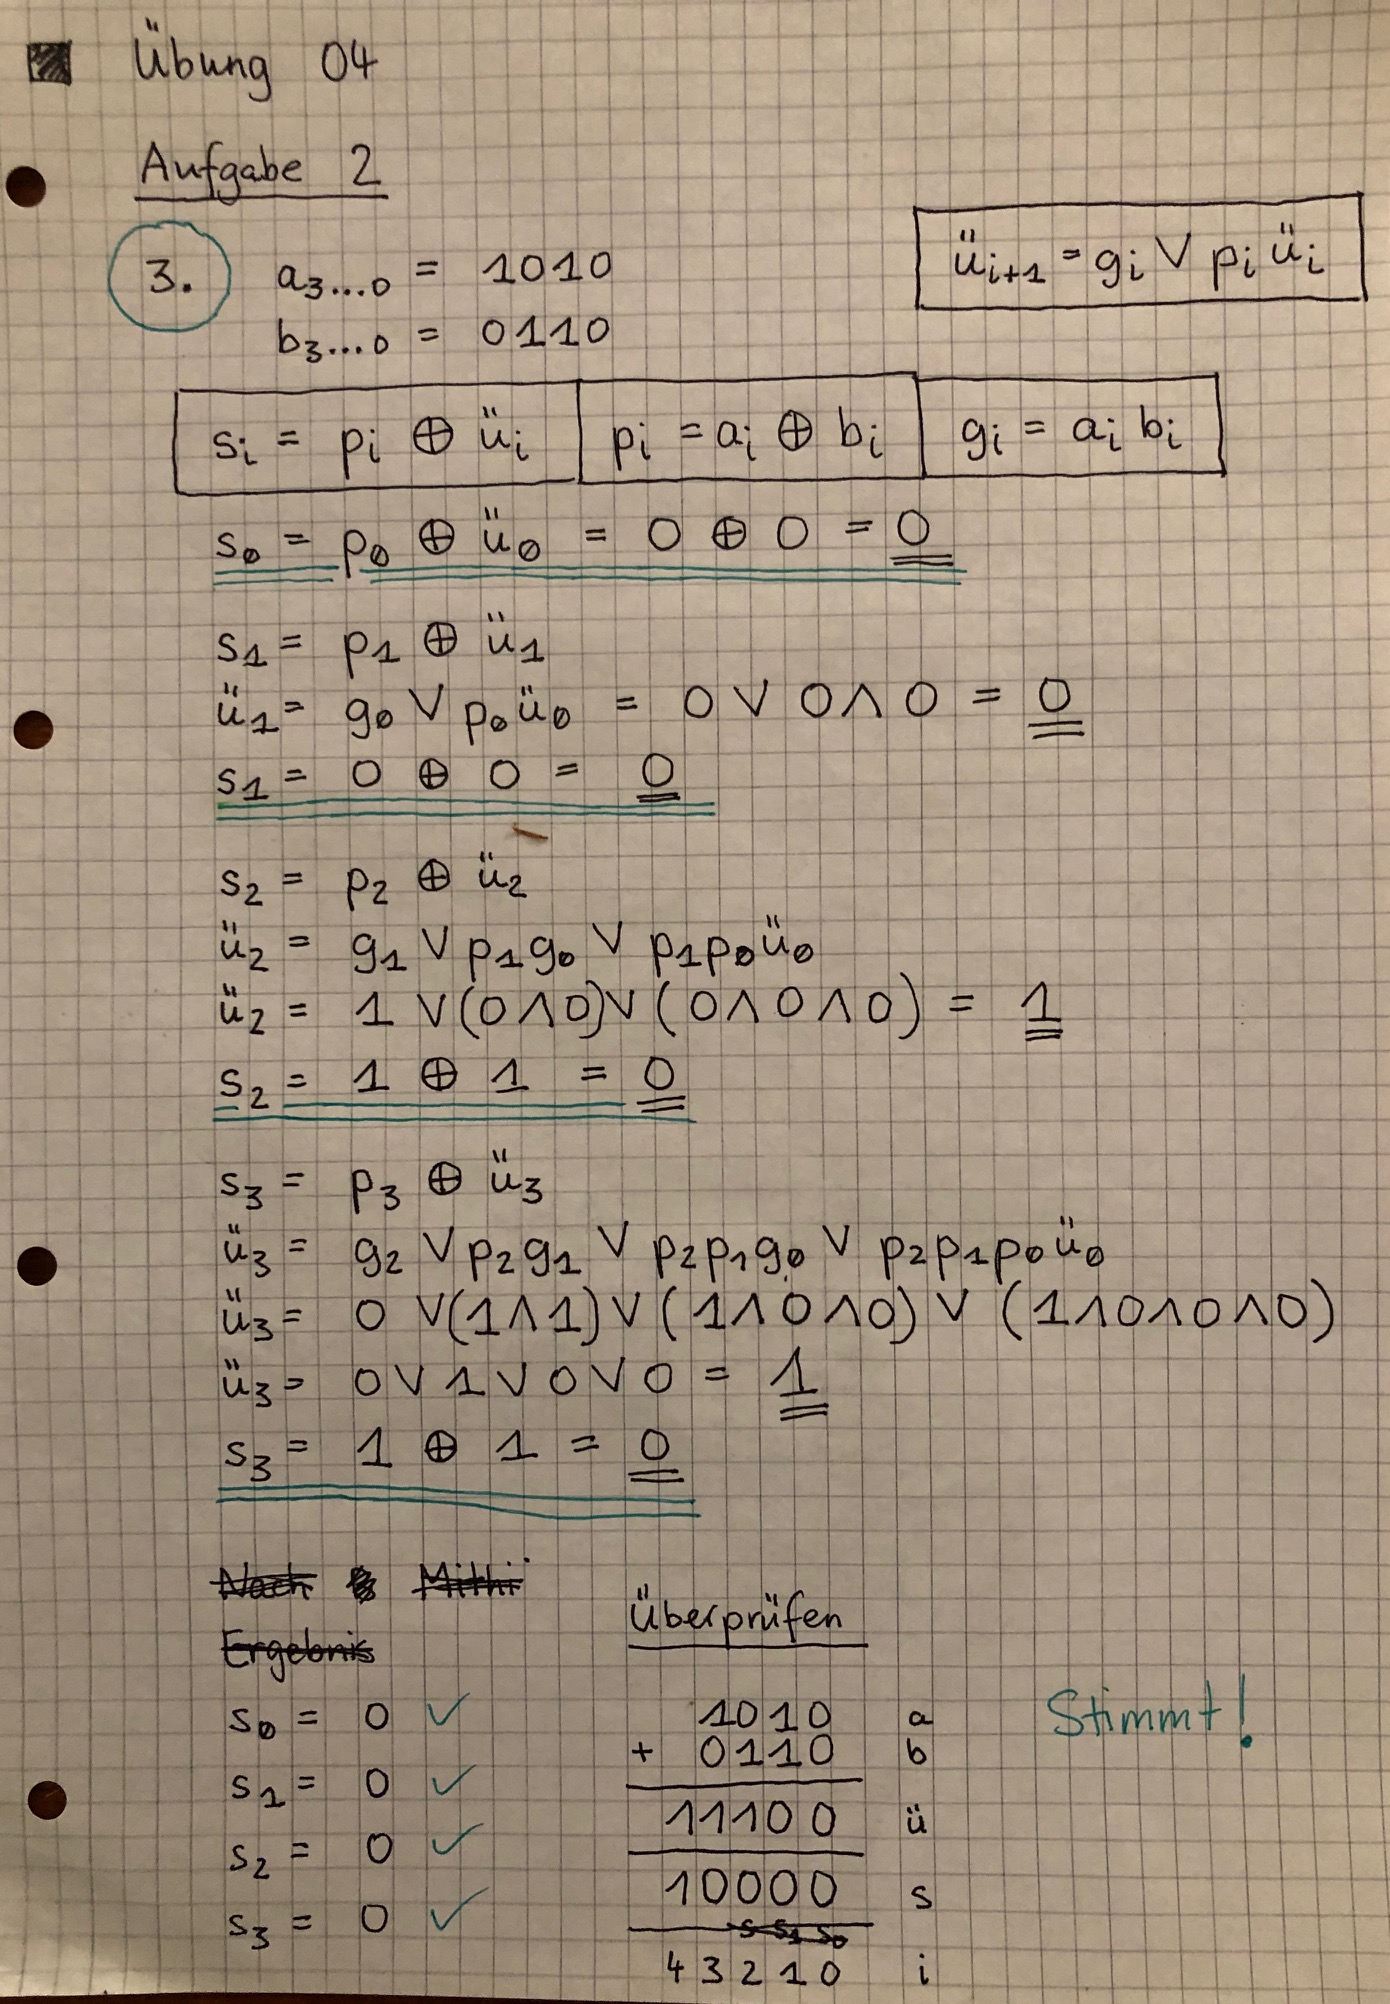 Übung 04
Aufgabe 2
ü_{i+1} = g_i ∨ p_i ü_i
3. a_{3...0} = 1010
b_{3...0} = 0110
s_i = p_i ⊕ ü_i p_i = a_i ⊕ b_i g_i = a_i b_i
s_0 = p_0 ⊕ ü_0 = 0 ⊕ 0 = 0
s_1 = p_1 ⊕ ü_1
ü_1 = g_0 ∨ p_0 ü_0 = 0 ∨ 0 ∧ 0 = 0
s_1 = 0 ⊕ 0 = 0
s_2 = p_2 ⊕ ü_2
ü_2 = g_1 ∨ p_1 g_0 ∨ p_1 p_0 ü_0
ü_2 = 1 ∨ (0 ∧ 0) ∨ (0 ∧ 0 ∧ 0) = 1
s_2 = 1 ⊕ 1 = 0
s_3 = p_3 ⊕ ü_3
ü_3 = g_2 ∨ p_2 g_1 ∨ p_2 p_1 g_0 ∨ p_2 p_1 p_0 ü_0
ü_3 = 0 ∨ (1 ∧ 1) ∨ (1 ∧ 0 ∧ 0) ∨ (1 ∧ 0 ∧ 0 ∧ 0)
ü_3 = 0 ∨ 1 ∨ 0 ∨ 0 = 1
s_3 = 1 ⊕ 1 = 0
Nach
Ergebnis
s_0 = 0 ✓
s_1 = 0 ✓
s_2 = 0 ✓
s_3 = 0 ✓
Überprüfen
1010 a
+ 0110 b
11100 ü
10000 s
s s_1 s_0
43210 i
Stimmt!